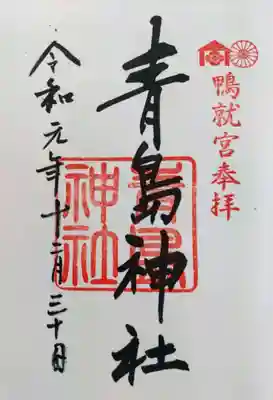 鴨就宮奉拝
青島神社
青島
神社
令和元年十二月三十日